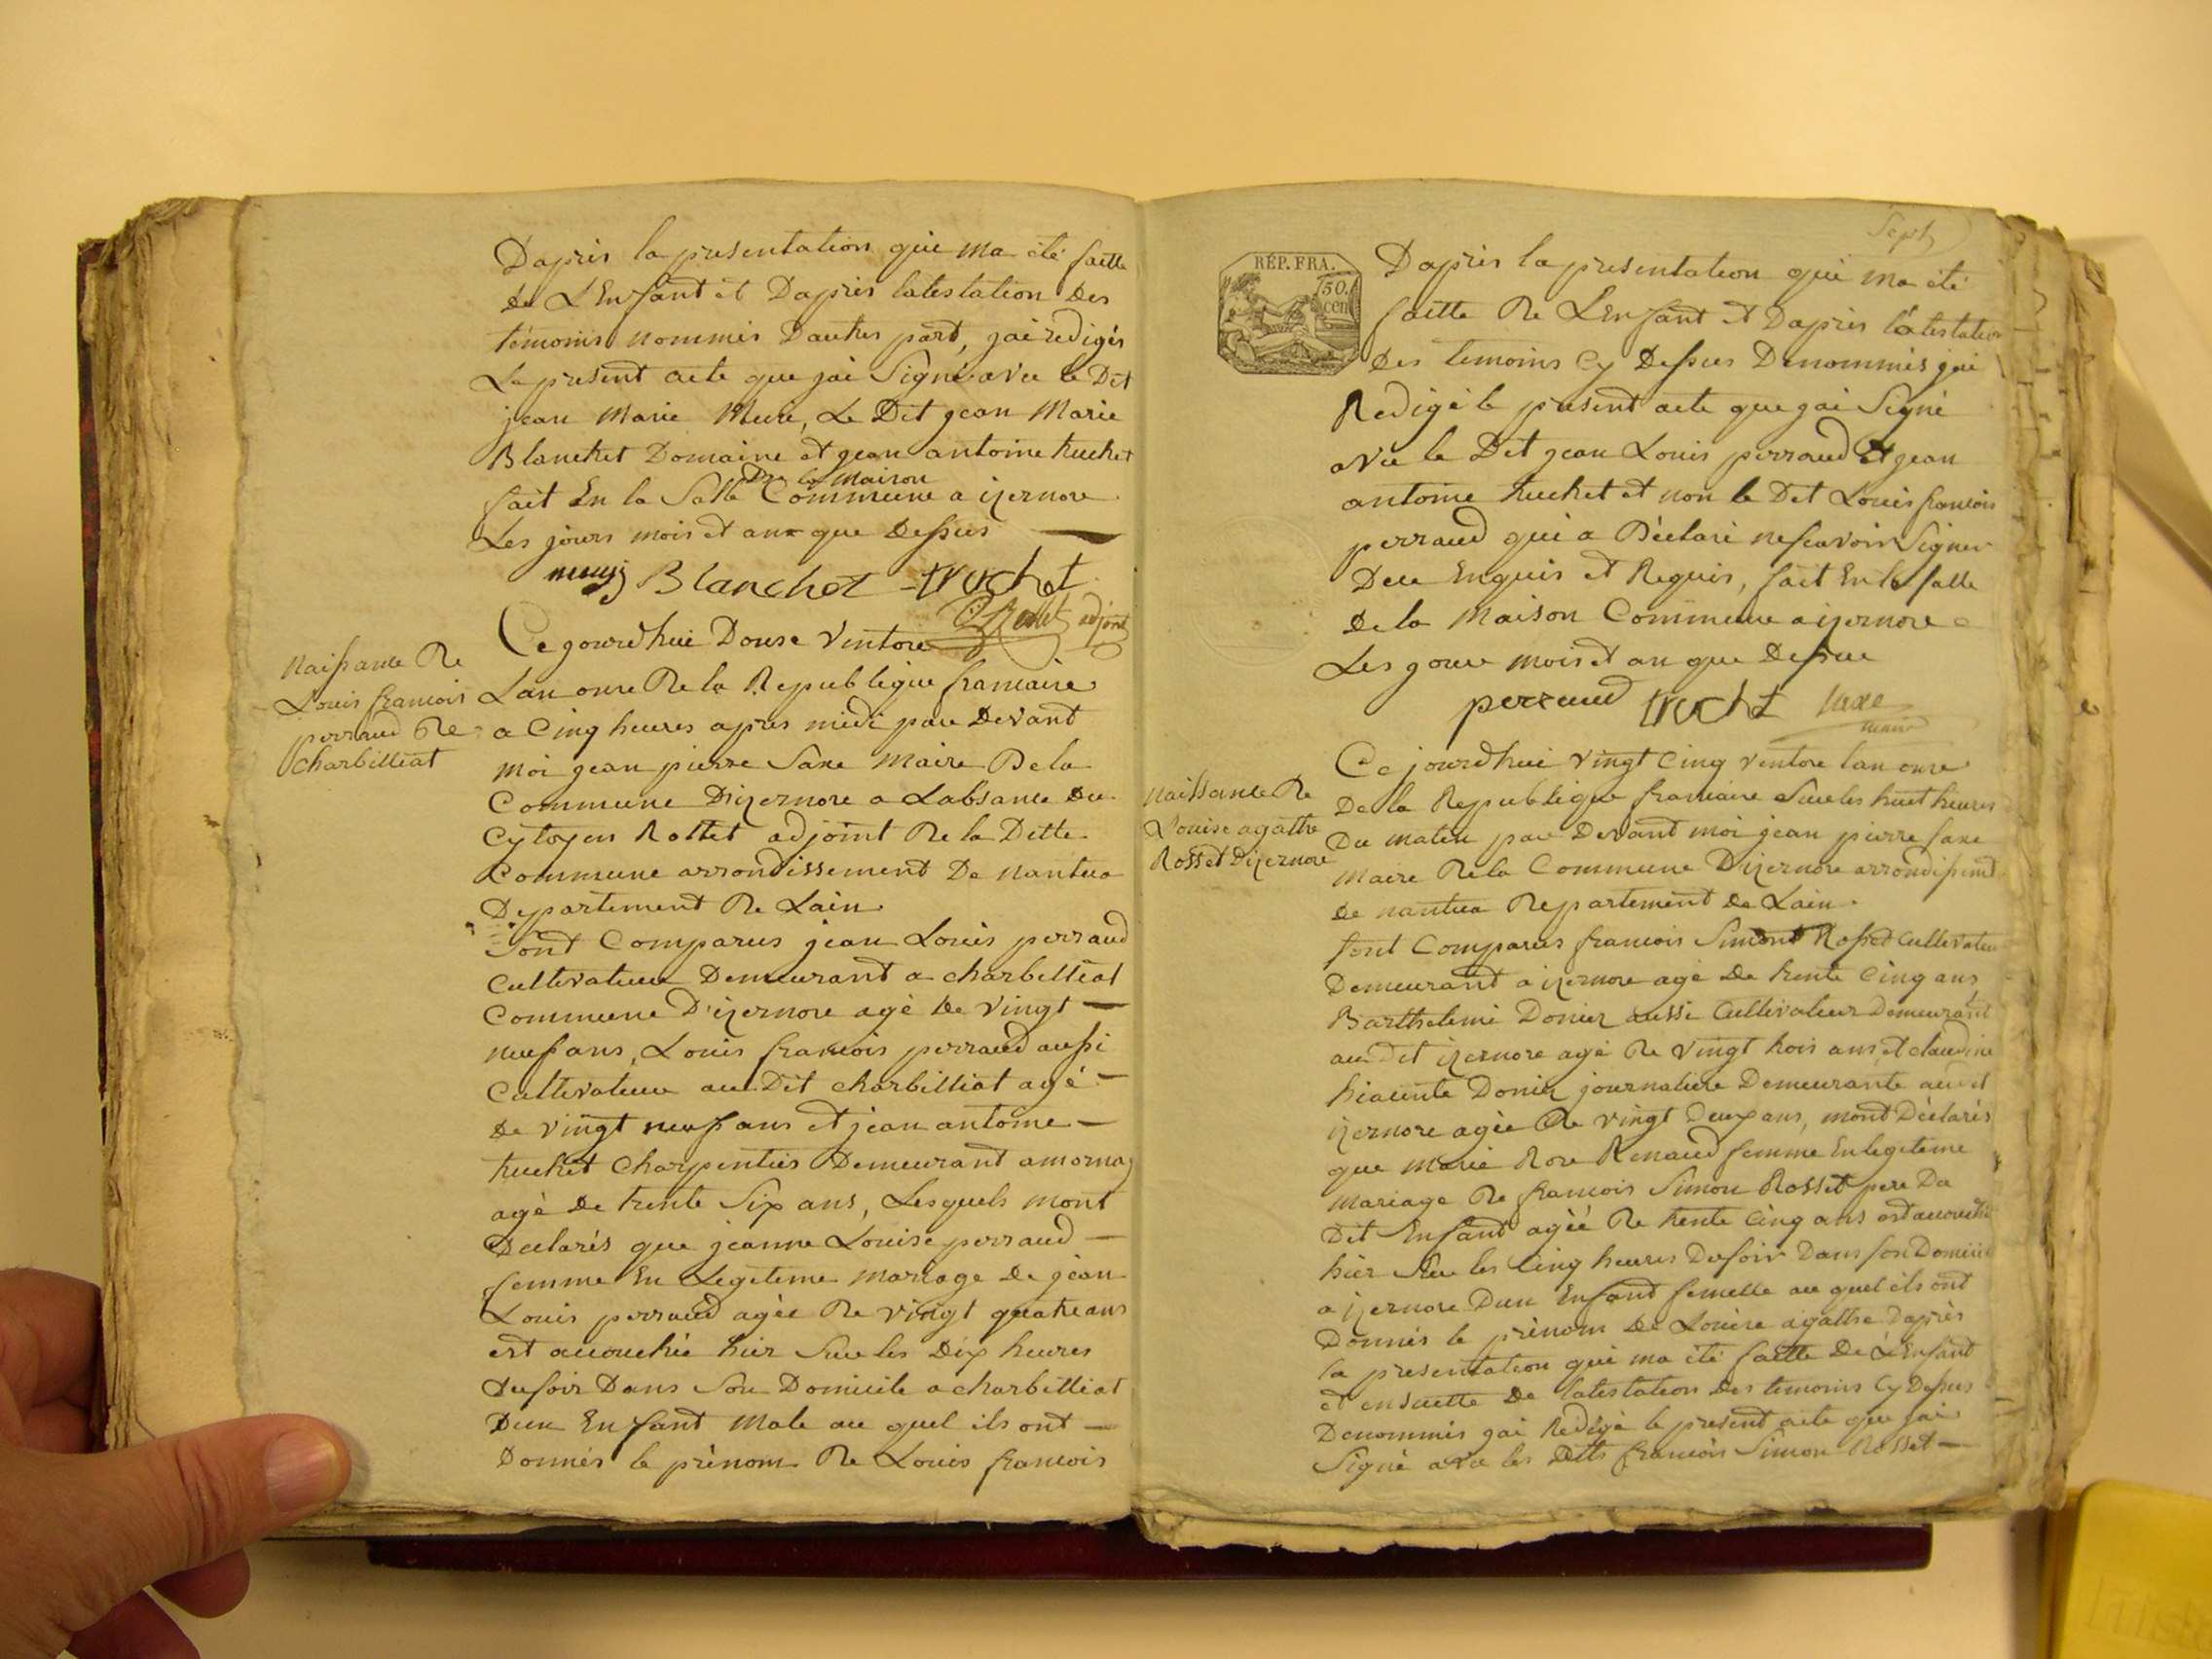 Dapres la presentation qui ma été faitte
de L'Enfant et Dapres latestation Des
témoins nommés Dautres part, jai redigés
Le present acte que jai Signé avec le Dit
jean Marie Le Dit jean Marie
Blanchet Domaine et jean antoine truchet
De la Maison
fait En la Salle Commune a izernore
Les jours mois et an que Dessus
Blanchet truchet
Rottet adjoint
Ce jourdhui Douse Ventore
Naissance De
Louis francois
perraud De
Charbilliat
Lan onse De la Republique francaise
a Cinq heures apres midi par Devant
moi jean pierre Saxe Maire De la
Commune D'izernore a Labsance du
Cytoyen Rottet adjoint De la Ditte
Commune arrondissement De nantua
Departement De Lain
Sont Comparus jean Louis perraud
Cultivateur Demeurant a charbilliat
Commune D'izernore agé De Vingt
neuf ans, Louis francois perraud aussi
Cultivateur au Dit charbilliat agé
De vingt neuf ans et jean antoine
truchet Charpentier Demeurant a mornay
agé De trente Six ans, Lesquels mont
Déclarés que jeanne Louise perraud
femme En Legitime mariage De jean
Louis perraud agée De vingt quatre ans
est accouchée hier Sur les Dix heures
du soir Dans Son Domicile a charbilliat
Dun Enfant Male au quel ils ont
Donnés le prénom De Louis francois
Sept
RÉP. FRA.
50.
cen
Dapres la presentation qui ma été
faitte De L'Enfant et Dapres l'atestation
Des temoins Cy Dessus Denommés jai
Redigé le present acte que jai Signé
avec le Dit jean Louis perraud Et jean
antoine truchet et non le Dit Louis francois
perraud qui a Déclaré ne scavoir Signer
De ce Enquis et Requis, fait En la salle
De la Maison Commune a izernore
Les jour mois et an que Dessus
perraud truchet Saxe
maire
Ce jourdhui vingt Cinq Ventore lan onse
Naissance De
Louise agathe
Rosset Dizernore
De la Republique francaise Sur les huit heures
Du matin par Devant moi jean pierre saxe
Maire De la Commune D'izernore arrondissement
De nantua Departement De Lain
sont Comparus francois Simont Rosset Cultivateur
Demeurant a izernore agé De trente Cinq ans
Barthelemi Donier aussi Cultivateur Demeurant
au Dit izernore agé De Vingt trois ans, et claudine
hiacinte Donier journaliere Demeurante audit
izernore agée De vingt Deux ans, mont Déclarés
que Marie Rose Renaud femme En legitime
Mariage De francois Simon Rosset pere Du
Dit Enfant agée De trente Cinq ans est accouchée
hier Sur les Cinq heures Du soir Dans son Domicile
a izernore Dun Enfant femelle au quel ils ont
Donnés le prénom De Louise agathe Dapres
la presentation qui ma été faitte De L'Enfant
et ensuitte De latestation Des temoins Cy Dessus
Denommés jai Redigé le present acte que jai
Signé avec les Dits francois Simon Rosset